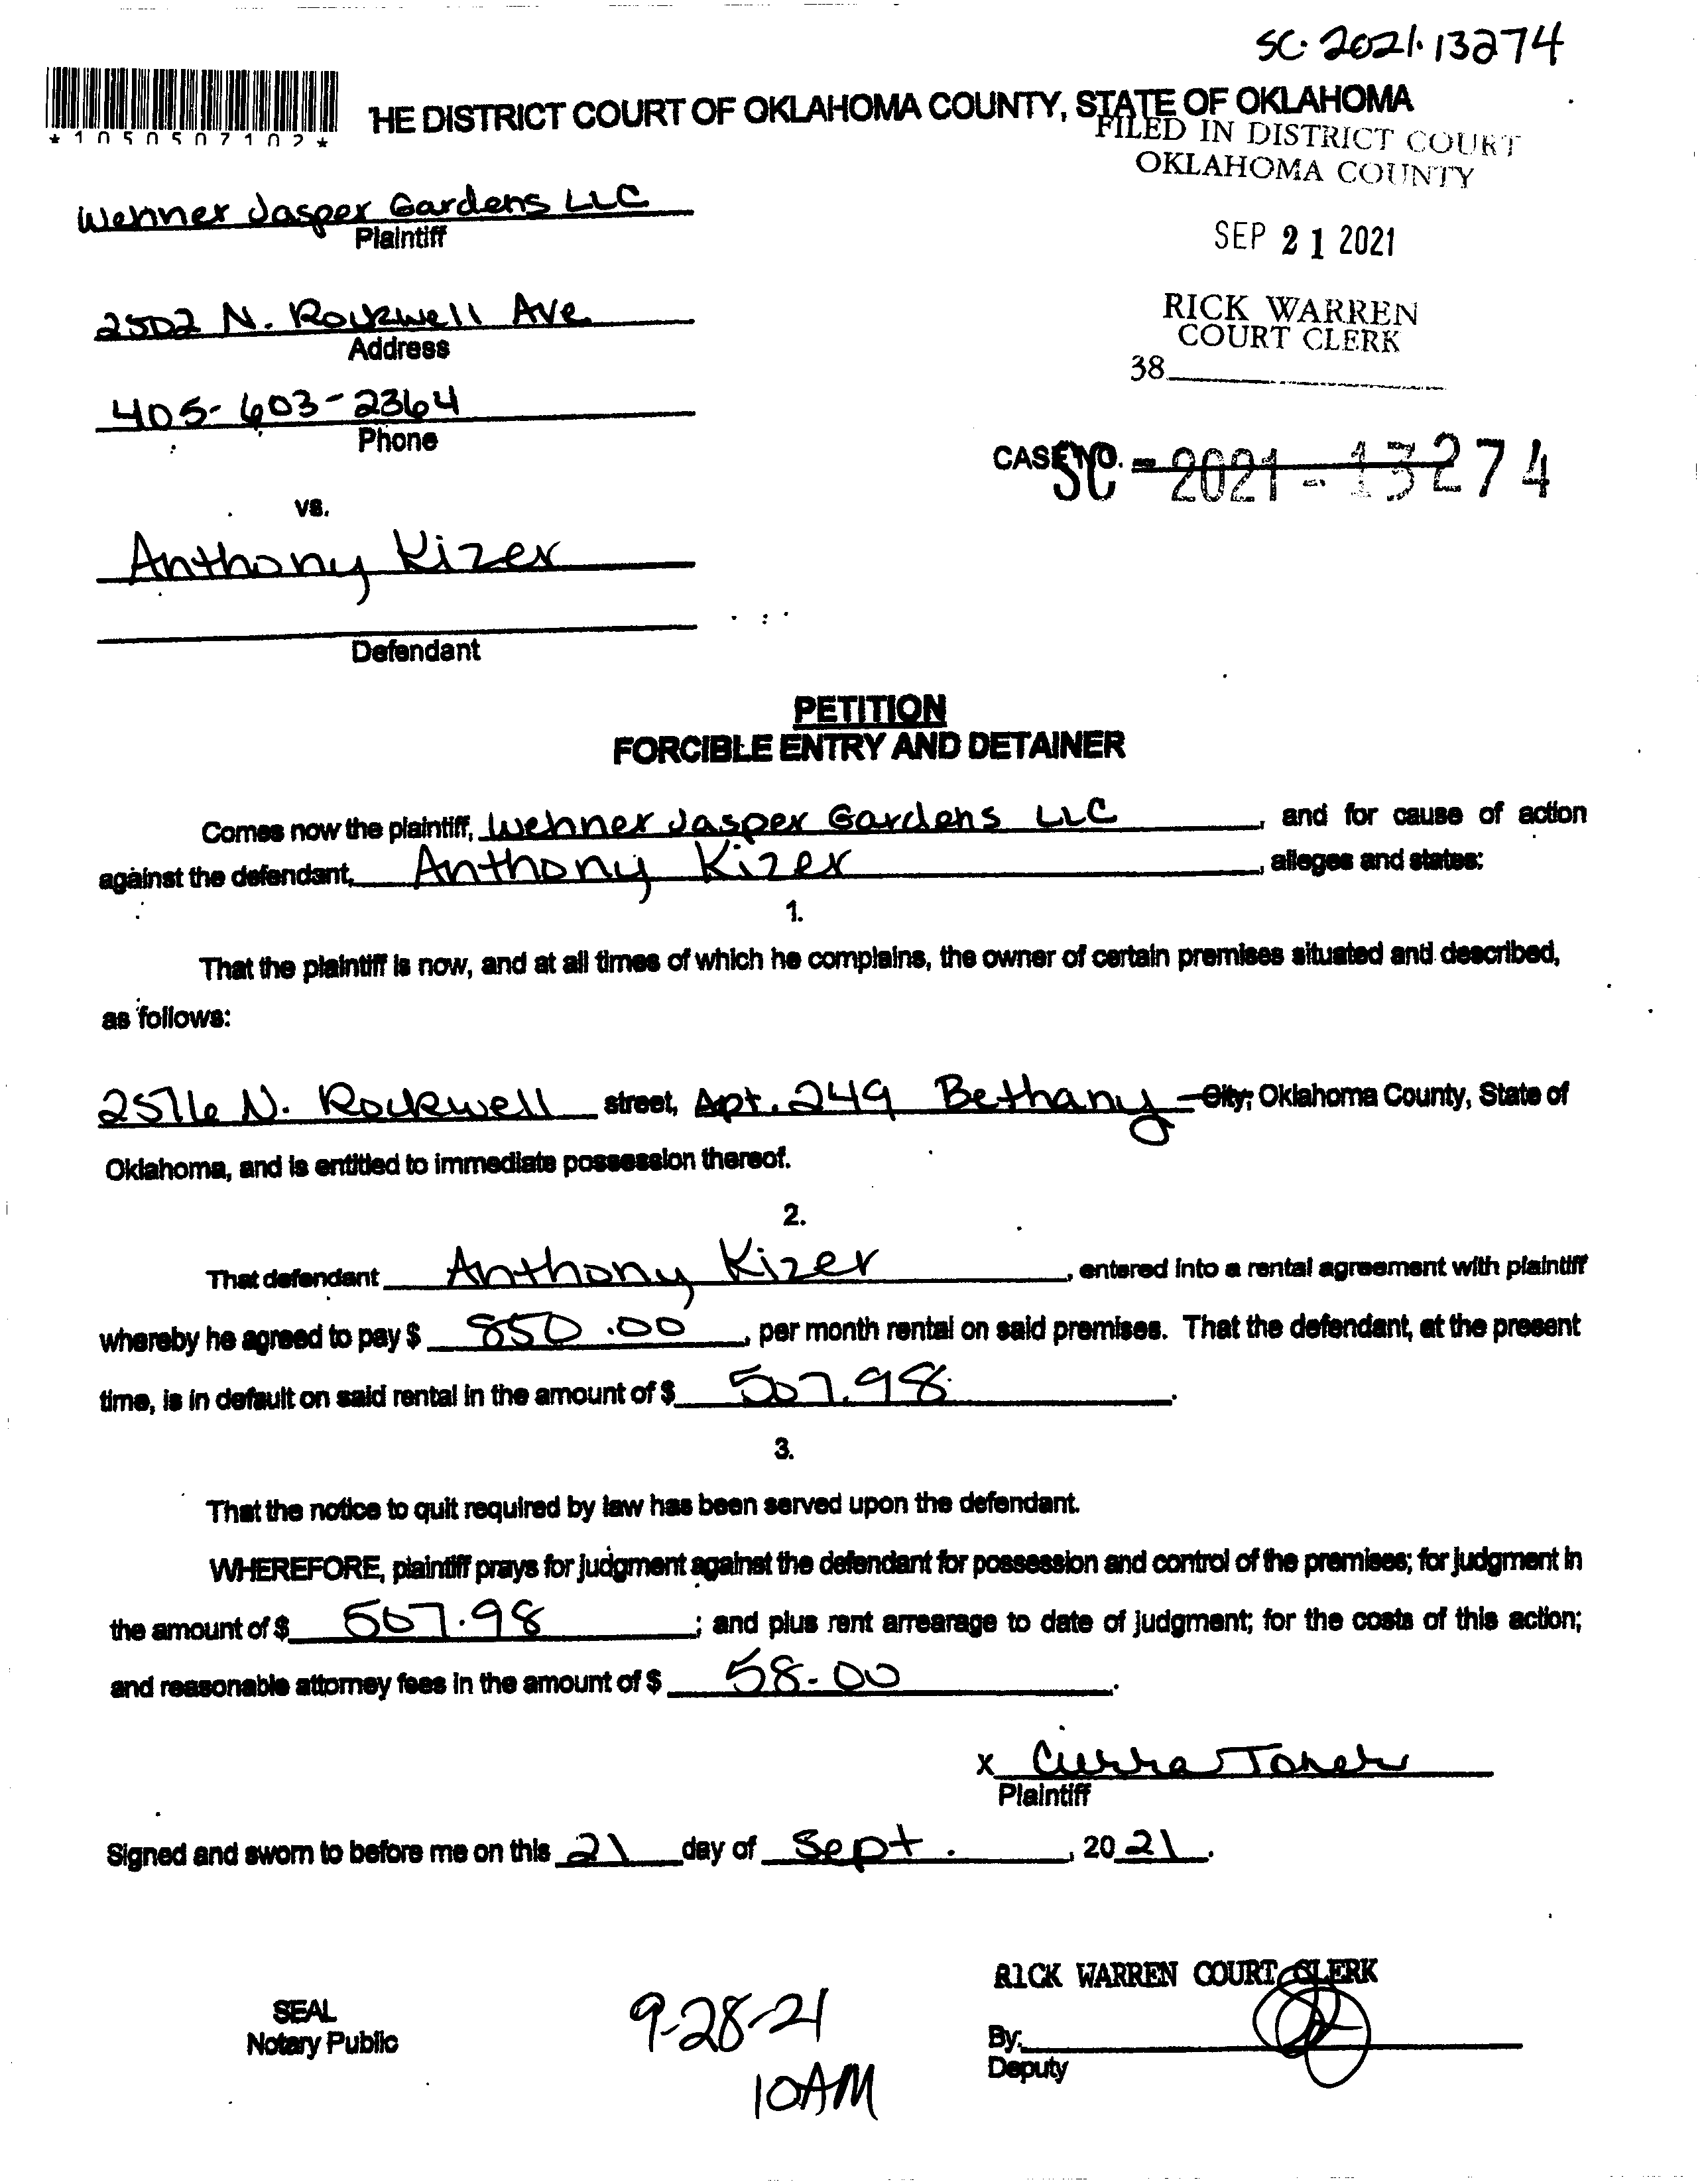 SC-2021-13274
*1050507102*
HE DISTRICT COURT OF OKLAHOMA COUNTY, STATE OF OKLAHOMA
FILED IN DISTRICT COURT
OKLAHOMA COUNTY
Wehner Jasper Gardens LLC
Plaintiff
SEP 21 2021
2502 N. Rockwell Ave.
Address
RICK WARREN
COURT CLERK
38
405-603-2364
Phone
CASE NO. SC - 2021 - 13274
vs.
Anthony Kizer
Defendant
PETITION
FORCIBLE ENTRY AND DETAINER
Comes now the plaintiff, Wehner Jasper Gardens LLC, and for cause of action
against the defendant, Anthony Kizer, alleges and states:
1.
That the plaintiff is now, and at all times of which he complains, the owner of certain premises situated and described,
as follows:
2516 N. Rockwell street, Apt. 249 Bethany City, Oklahoma County, State of
Oklahoma, and is entitled to immediate possession thereof.
2.
That defendant Anthony Kizer, entered into a rental agreement with plaintiff
whereby he agreed to pay $ 850.00, per month rental on said premises. That the defendant, at the present
time, is in default on said rental in the amount of $ 507.98.
3.
That the notice to quit required by law has been served upon the defendant.
WHEREFORE, plaintiff prays for judgment against the defendant for possession and control of the premises; for judgment in
the amount of $ 507.98; and plus rent arrearage to date of judgment; for the costs of this action;
and reasonable attorney fees in the amount of $ 58.00.
x
Plaintiff
Signed and sworn to before me on this 21 day of Sept., 2021.
RICK WARREN COURT CLERK
SEAL
Notary Public
9-28-21
10AM
By:
Deputy